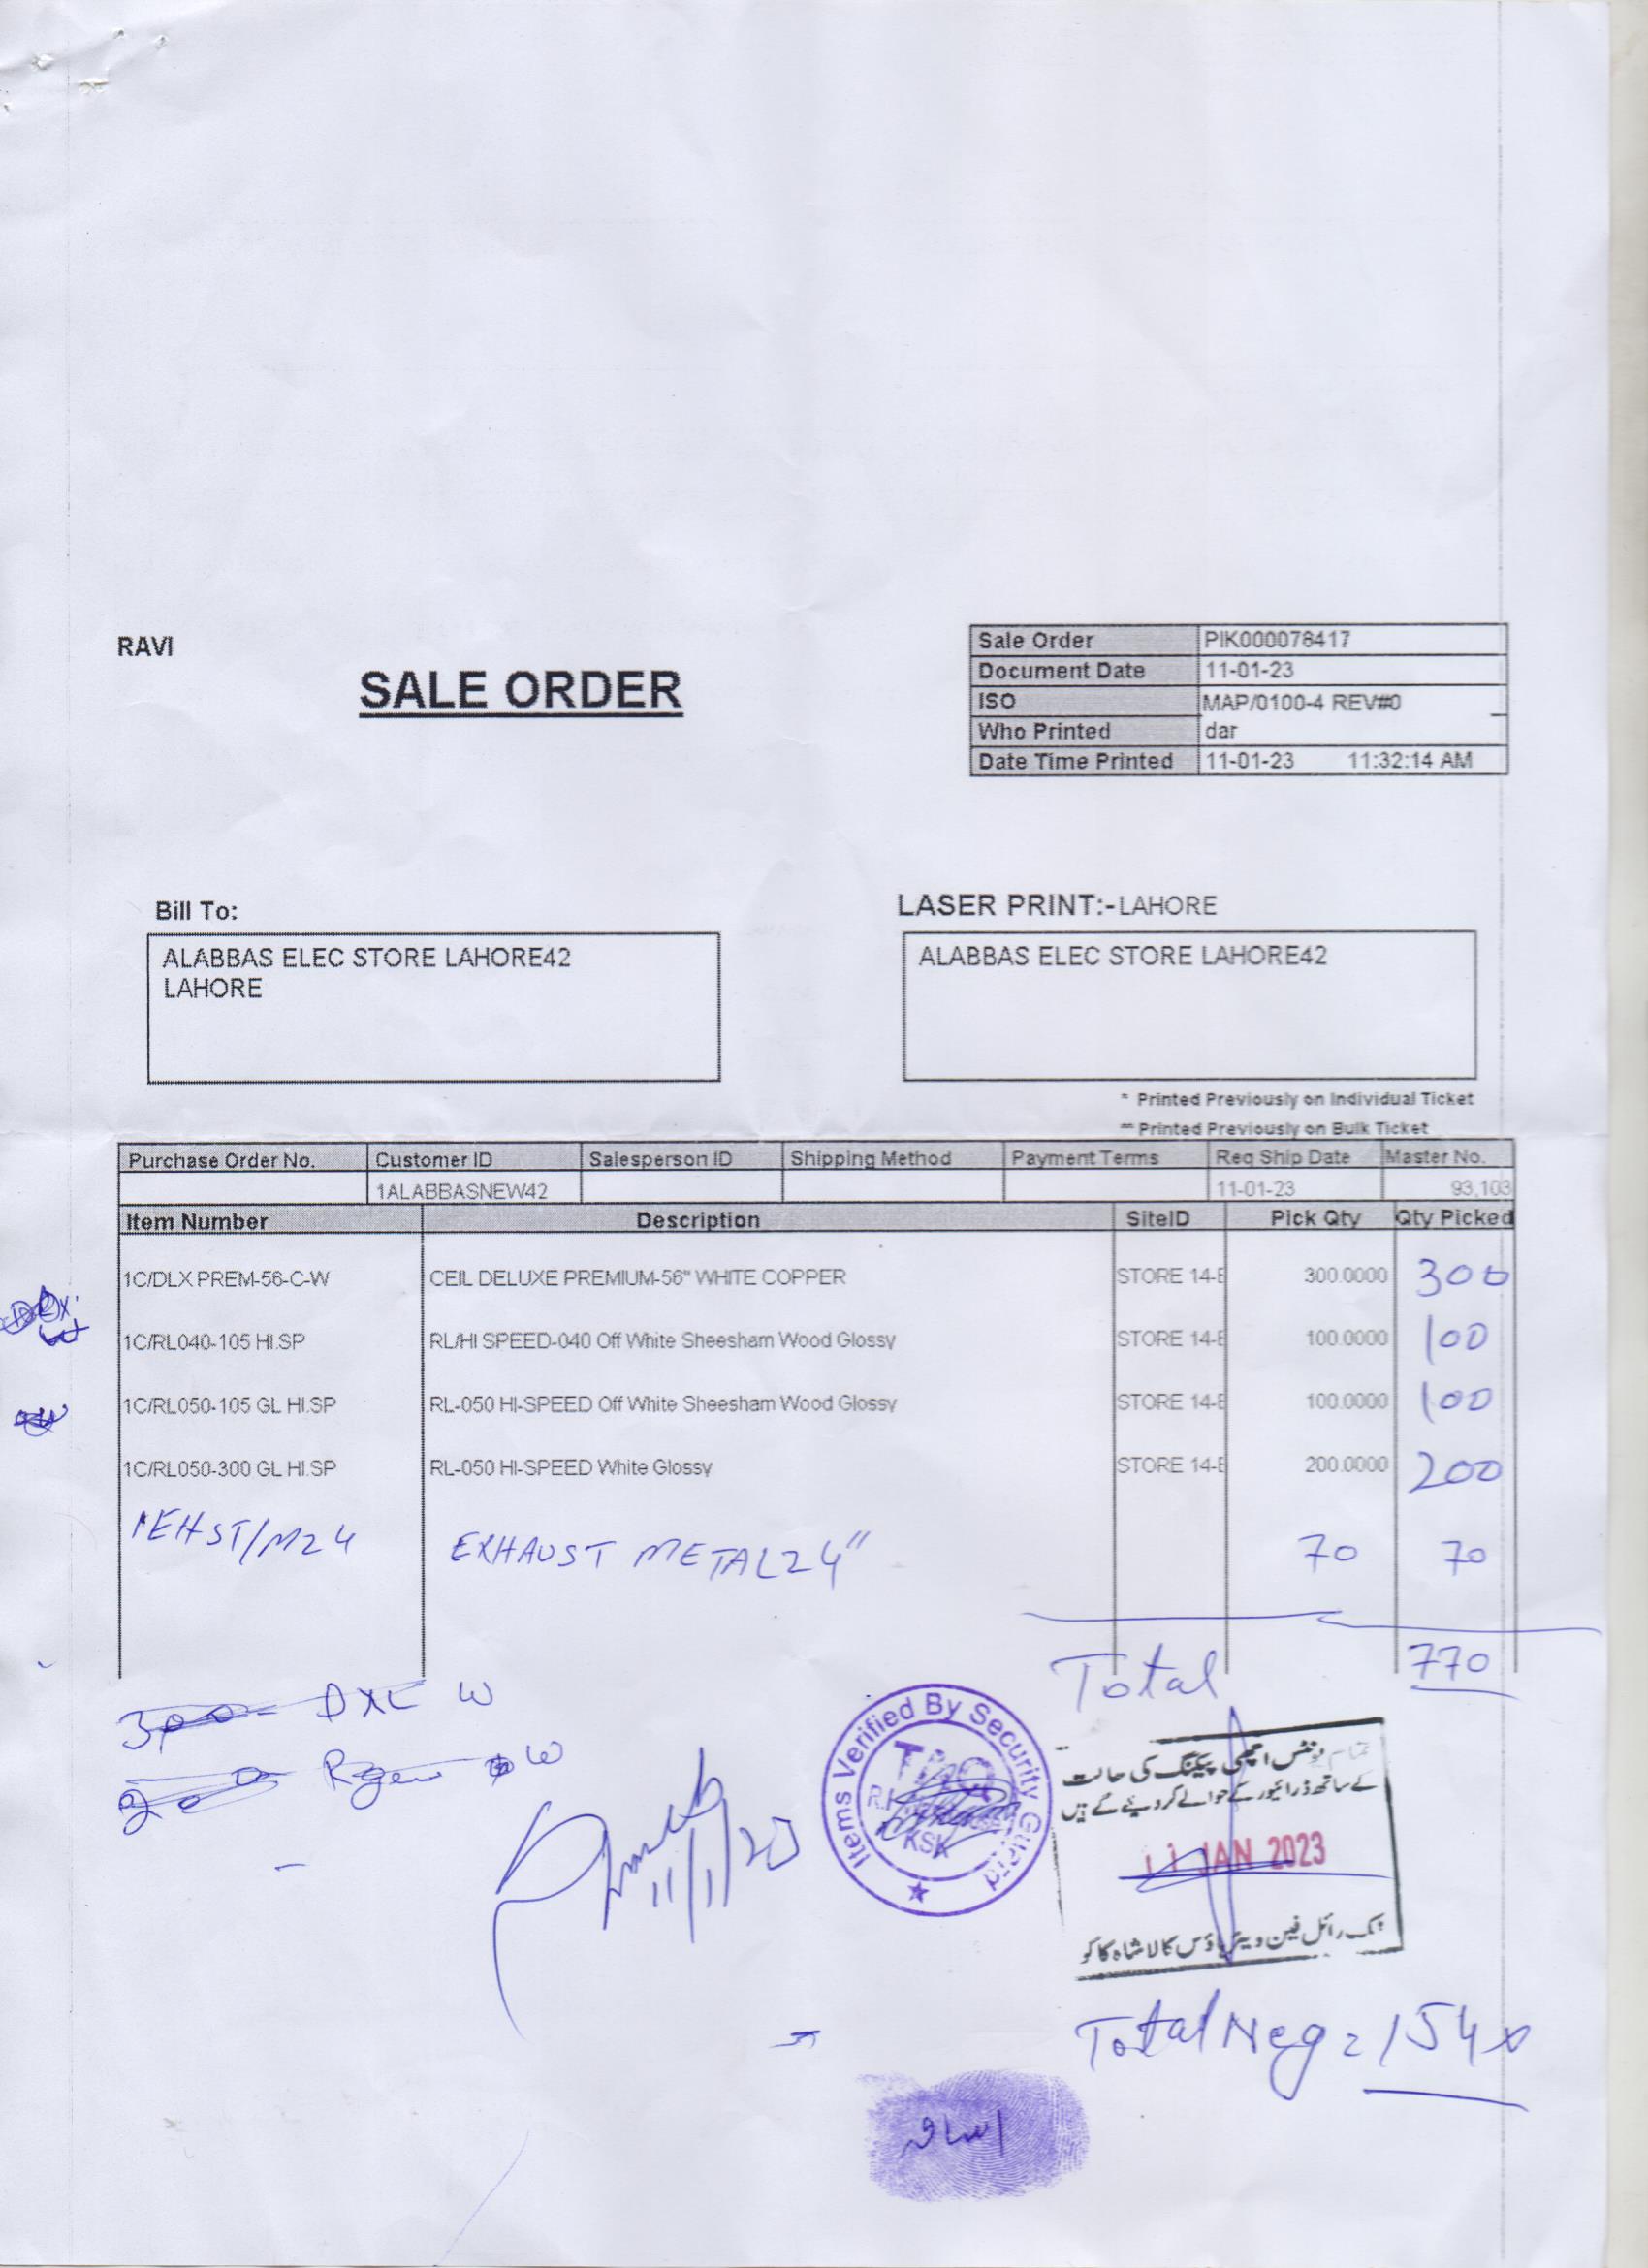 RAVI
SALE ORDER
Sale Order PIK000078417
Document Date 11-01-23
ISO MAP/0100-4 REV#0
Who Printed dar
Date Time Printed 11-01-23 11:32:14 AM
Bill To:
ALABBAS ELEC STORE LAHORE42
LAHORE
LASER PRINT:-LAHORE
ALABBAS ELEC STORE LAHORE42
* Printed Previously on Individual Ticket
** Printed Previously on Bulk Ticket
Purchase Order No. Customer ID Salesperson ID Shipping Method Payment Terms Req Ship Date Master No.
1ALABBASNEW42 11-01-23 93,103
Item Number Description SiteID Pick Qty Qty Picked
1C/DLX PREM-56-C-W CEIL DELUXE PREMIUM-56" WHITE COPPER STORE 14-E 300.0000 300
1C/RL040-105 HI.SP RL/HI SPEED-040 Off White Sheesham Wood Glossy STORE 14-E 100.0000 100
1C/RL050-105 GL HI.SP RL-050 HI-SPEED Off White Sheesham Wood Glossy STORE 14-E 100.0000 100
1C/RL050-300 GL HI.SP RL-050 HI-SPEED White Glossy STORE 14-E 200.0000 200
1EHST/M24 EXHAUST METAL24" 70 70
Total 770
300 DXL W
W
11/1/23
Items Verified By Security Guard
KSK
تمام یونٹس اچھی پیکنگ کی حالت
کے ساتھ ڈرائیور کے حوالے کر دیئے گئے ہیں
11 JAN 2023
رائل فین ویئر ہاؤس کالا شاہ کاکو
Total Neg = 1540